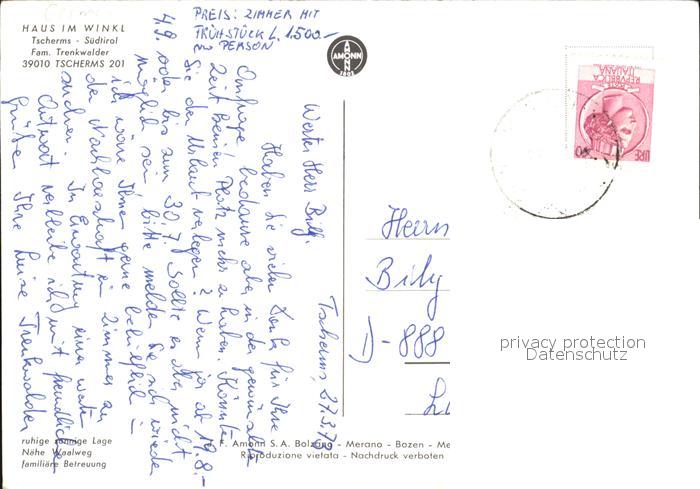 HAUS IM WINKL
Tscherms - Südtirol
Fam. Trenkwalder
39010 TSCHERMS 201
PREIS: ZIMMER MIT
FRÜHSTÜCK L. 1.500.-
PRO PERSON
AMONN
Tscherms, 27.3.73
Werter Herr Bily.
Haben Sie vielen Dank für Ihre
Anfrage, bedaure aber in der gewünschten
Zeit keinen Platz mehr zu haben. Könnten
Sie den Urlaub verlegen? Wenn ja ab 19.8.-
4.9. oder bis zum 30.7. Sollte es aber nicht
möglich sein, bitte melden Sie sich wieder
ich wäre Ihnen gerne behilflich in
der Nachbarschaft ein Zimmer zu
suchen. In Erwartung einer werten
Antwort verbleibe ich mit freundlichen
Grüßen Ihre Luise Trenkwalder
Herrn
Bily
D-888
REPUBBLICA
ITALIANA
LIRE
privacy protection
Datenschutz
ruhige sonnige Lage
Nähe Waalweg
familiäre Betreuung
F. Amonn S.A. Bolzano - Merano - Bozen - Me
Riproduzione vietata - Nachdruck verboten